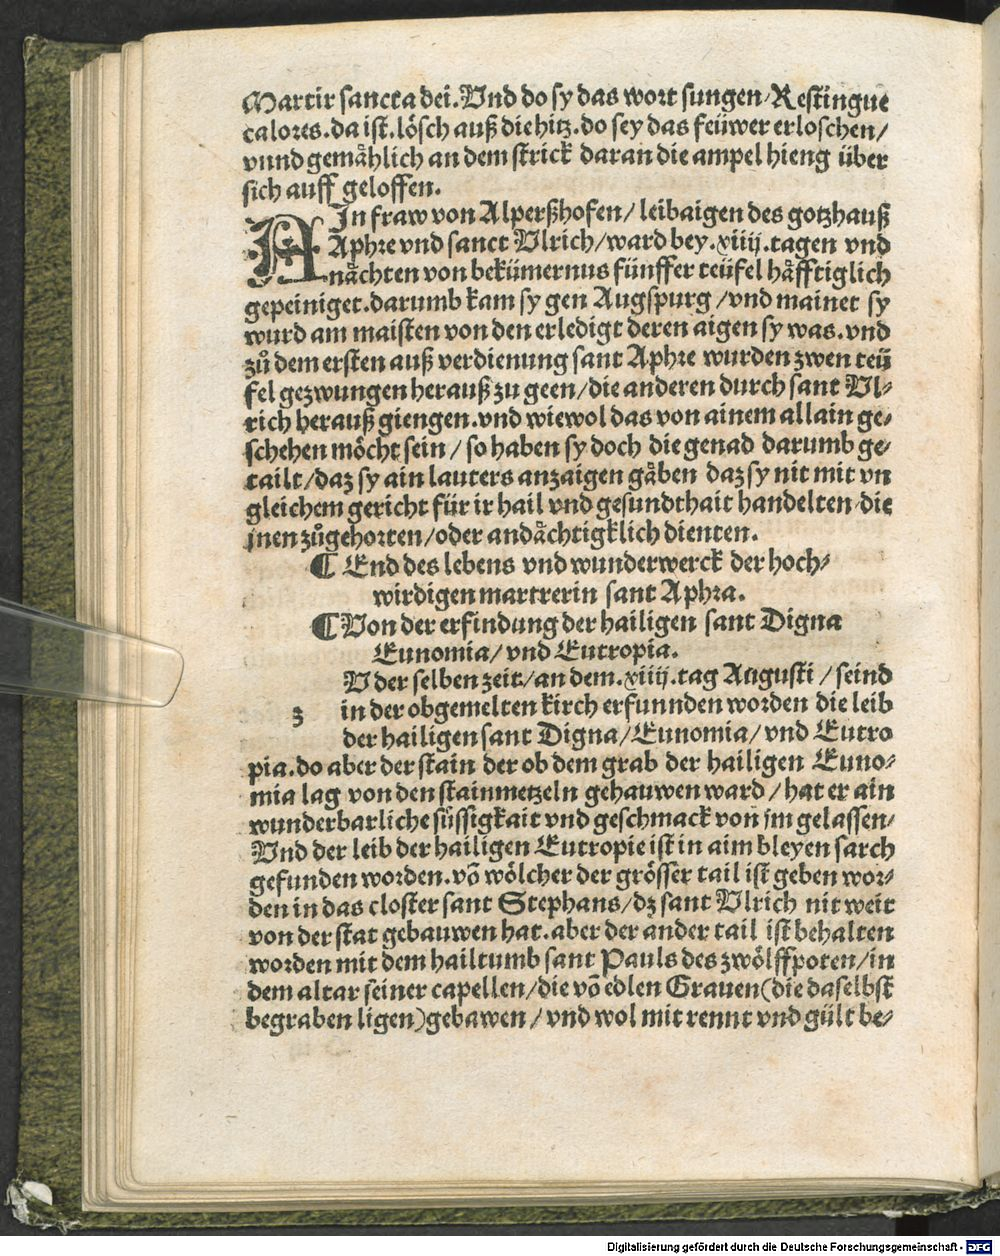 Martir sancta dei. Vnd do sy das wort sungen/Restingue
calores. da ist. lösch auß die hitz. do sey das feüwer erloschen/
vnnd gemaͤhlich an dem strick daran die ampel hieng über
sich auff geloffen.
AIn fraw von Alperßhofen/ leibaigen des gotzhauß
Aphre vnd sanct Vlrich/ward bey .xiiij. tagen vnd
naͤchten von bekümernus fünffer teüfel haͤfftiglich
gepeiniget. darumb kam sy gen Augspurg/vnd mainet sy
wurd am maisten von den erledigt deren aigen sy was. vnd
zů dem ersten auß verdienung sant Aphre wurden zwen teü
fel gezwungen herauß zu geen/die anderen durch sant Vl⸗
rich herauß giengen. vnd wiewol das von ainem allain ge⸗
schehen möcht sein/ so haben sy doch die genad darumb ge⸗
tailt/daz sy ain lauters anzaigen gaͤben daz sy nit mit vn
gleichem gericht für ir hail vnd gesundthait handelten die
jnen zůgehorten/oder andaͤchtigklich dienten.
¶ End des lebens vnd wunderwerck der hoch⸗
wirdigen martrerin sant Aphra.
¶ Von der erfindung der hailigen sant Digna
Eunomia/ vnd Eutropia.
V der selben zeit/an dem .xiiij. tag Augusti/ seind
z in der obgemelten kirch erfunnden worden die leib
der hailigen sant Digna/Eunomia/ vnd Eutro
pia. do aber der stain der ob dem grab der hailigen Euno⸗
mia lag von den stainmetzeln gehauwen ward/ hat er ain
wunderbarliche süssigkait vnd geschmack von jm gelassen/
Vnd der leib der hailigen Eutropie ist in aim bleyen sarch
gefunden worden. võ wölcher der grösser tail ist geben wor⸗
den in das closter sant Stephans/dz sant Vlrich nit weit
von der stat gebauwen hat. aber der ander tail ist behalten
worden mit dem hailtumb sant Pauls des zwölffpoten/in
dem altar seiner capellen/die võ edlen Grauen(die daselbst
begraben ligen)gebawen/ vnd wol mit rennt vnd gült be⸗
Digitalisierung gefördert durch die Deutsche Forschungsgemeinschaft - DFG